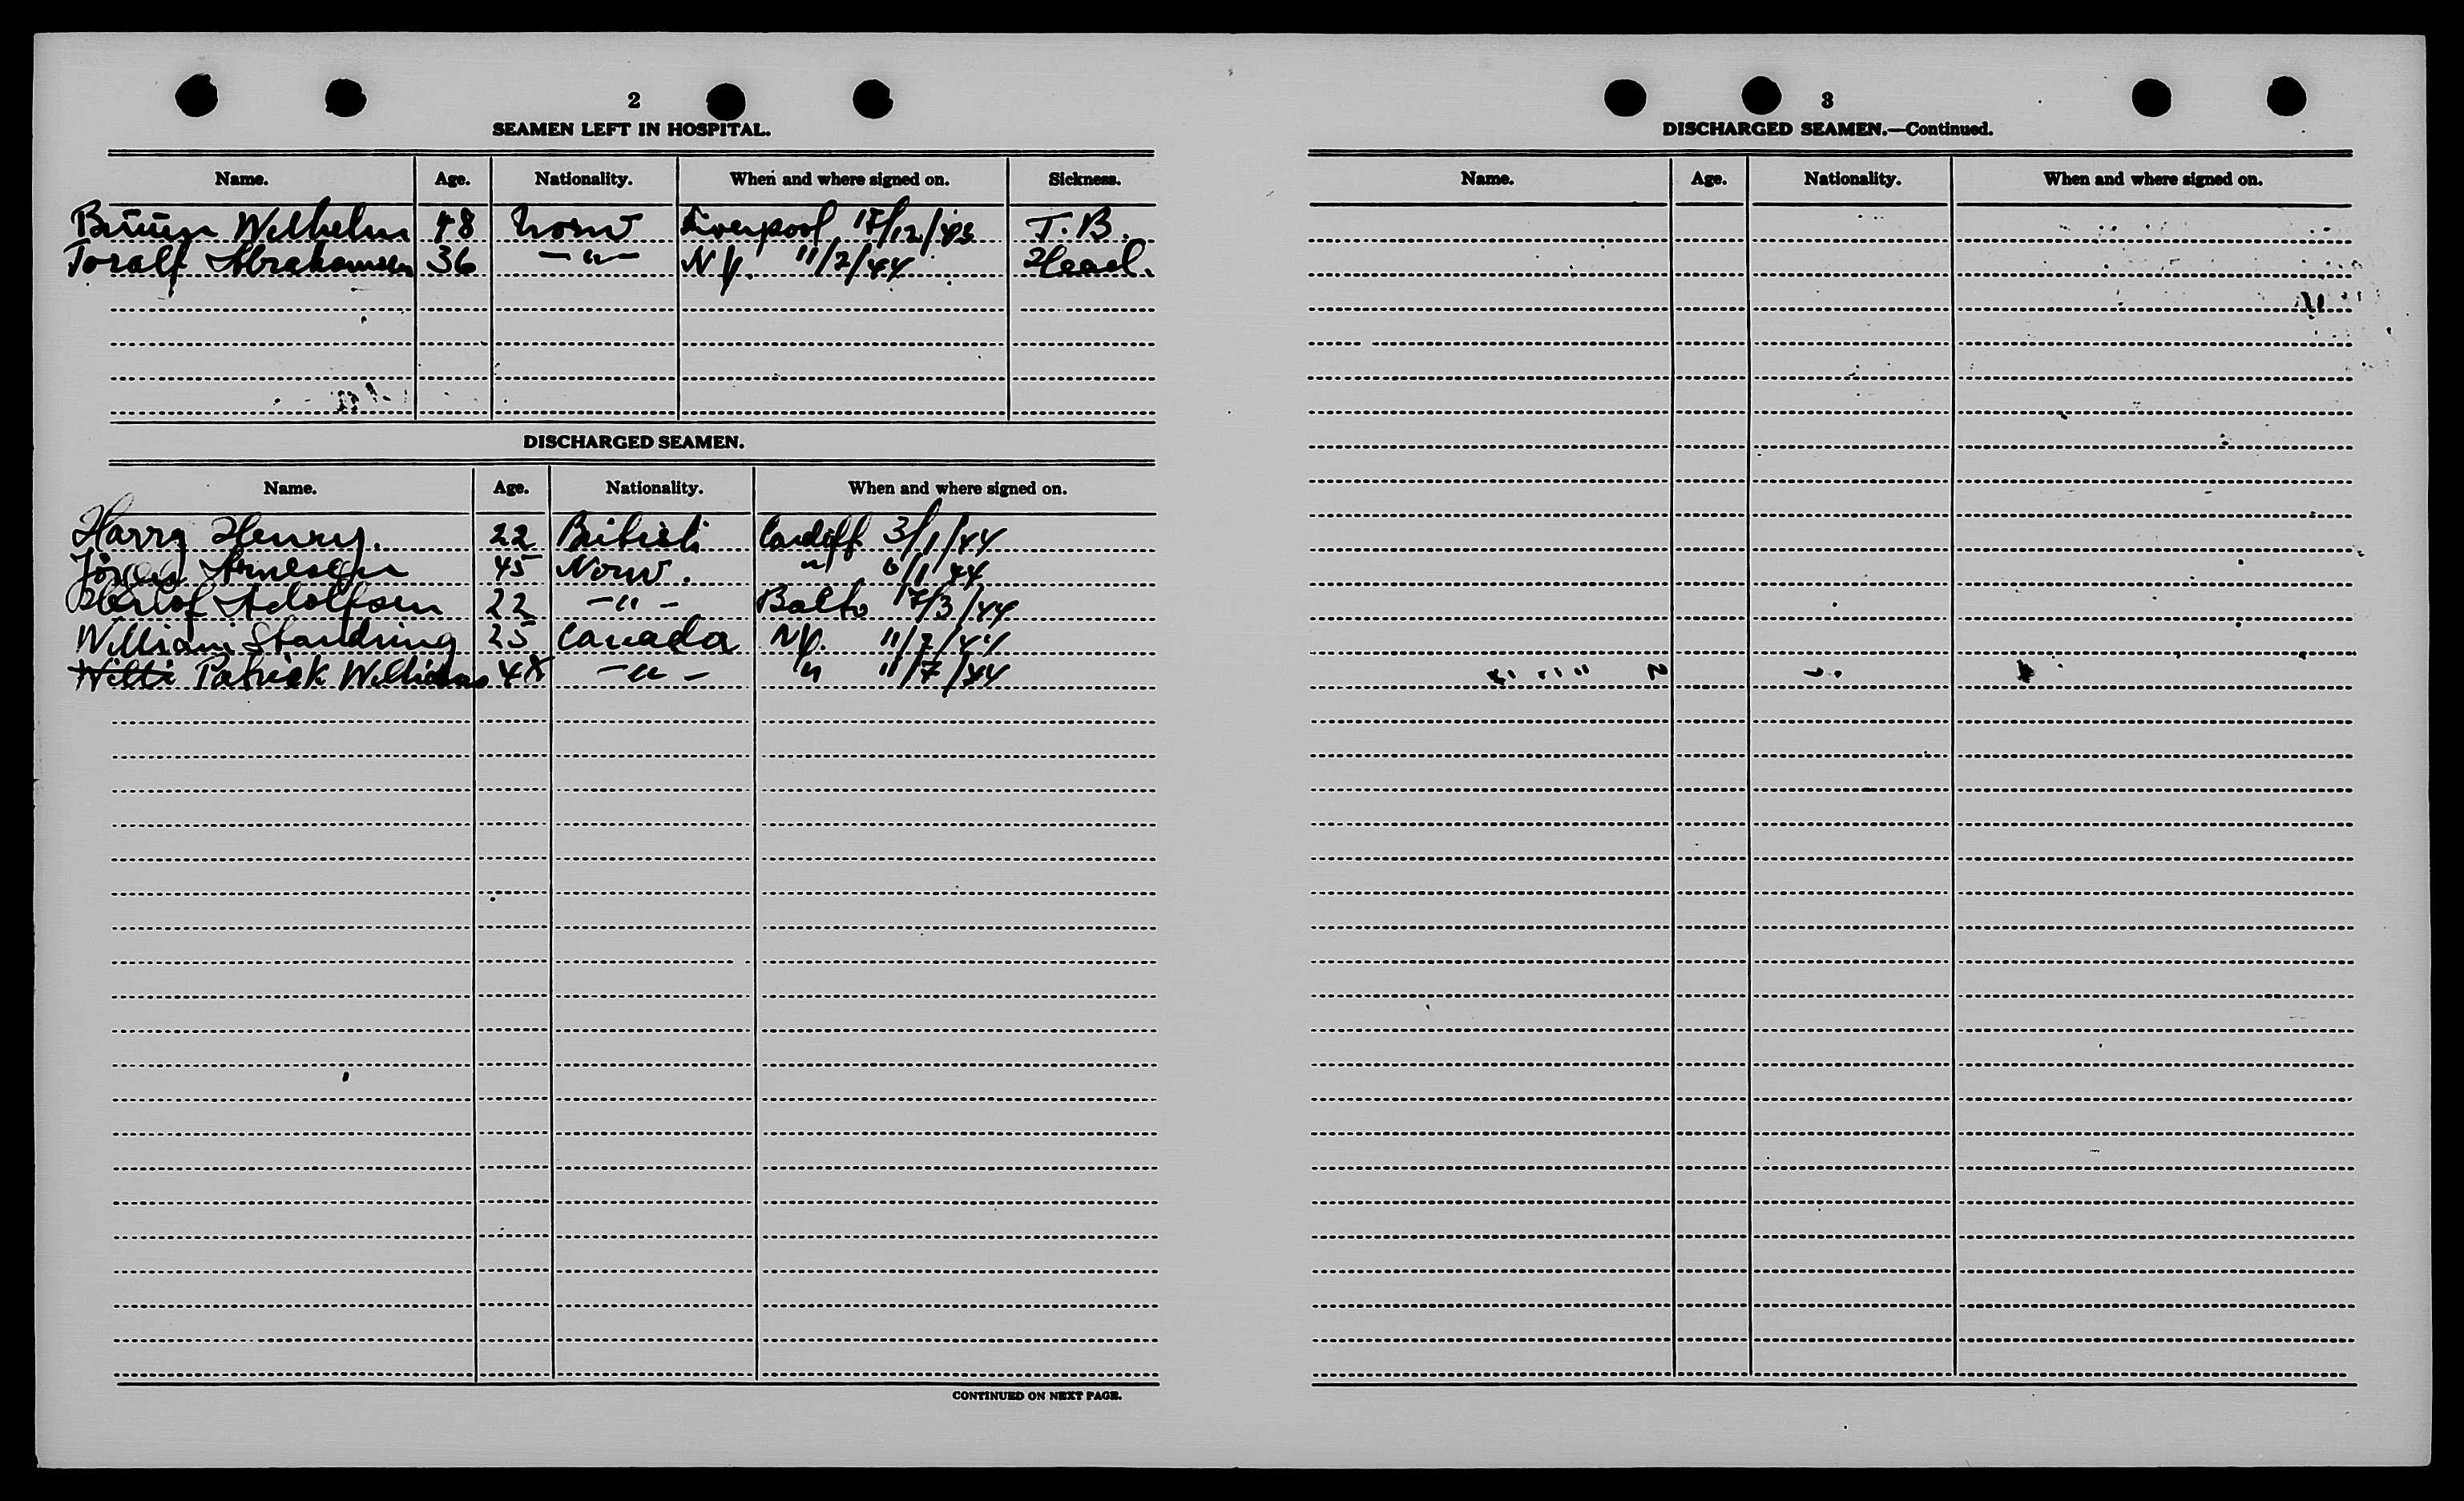 2
SEAMEN LEFT IN HOSPITAL.
Name. Age. Nationality. When and where signed on. Sickness.
Brüün Wilhelm 48 Norw Liverpool 17/12/43 T.B.
Toralf Abrahamsen 36 -"- N.Y. 11/2/44 Head.
DISCHARGED SEAMEN.
Name. Age. Nationality. When and where signed on.
Harry Henry. 22 British Cardiff 3/1/44
Arnesen 45 Norw. " 6/1 44
Adolfsen 22 -"- Balto 17/3/44
William Standring 25 Canada N.Y. 11/7/44
Patrick Williams 48 -"- " 11/7/44
CONTINUED ON NEXT PAGE.
3
DISCHARGED SEAMEN.—Continued.
Name. Age. Nationality. When and where signed on.